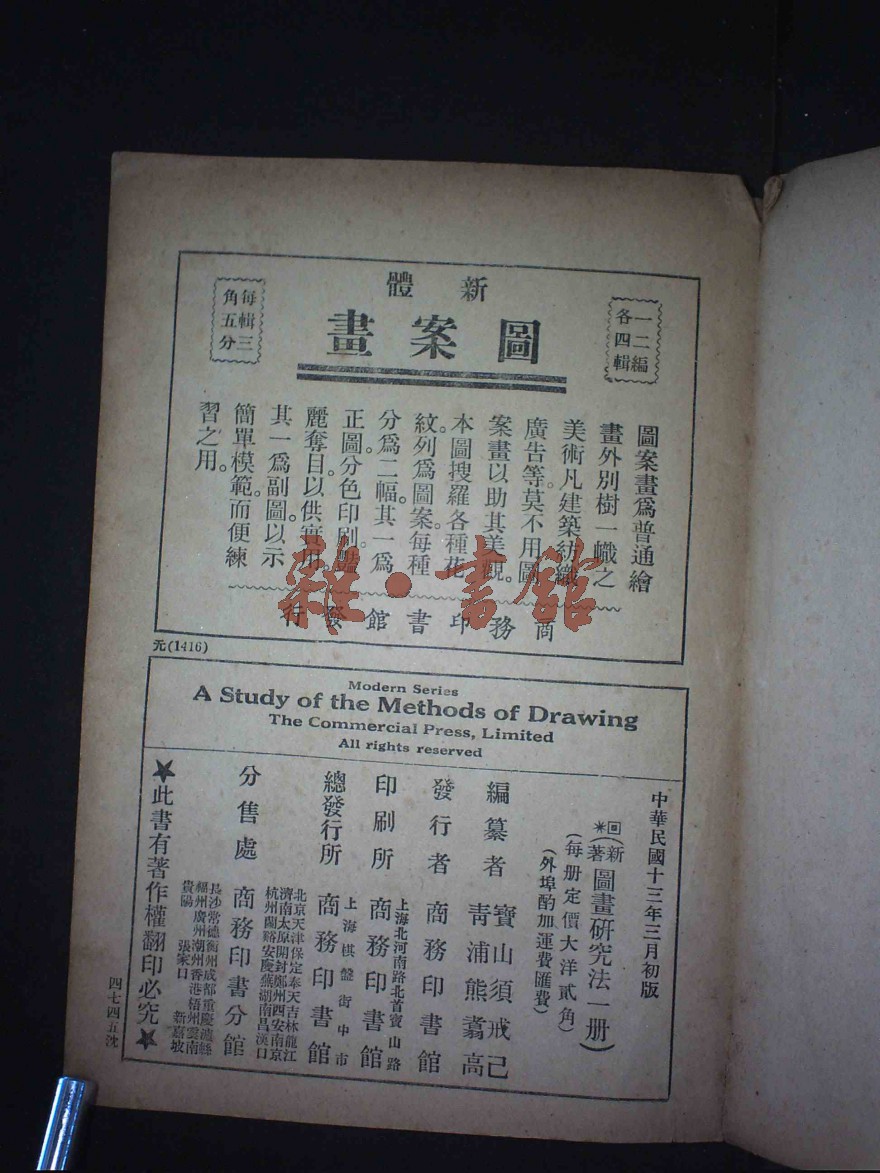 新體
圖案畫
一二編
各四輯
每輯三
角五分
圖案畫爲普通繪
畫外別樹一幟之
美術凡建築紡織
廣告等莫不用圖
案畫以助其美觀。
本圖搜羅各種花
紋列爲圖案每種
分爲二幅。其一爲
正圖分色印刷。豔
麗奪目以供實用。
其一爲副圖以示
簡單模範。而便練
習之用。
商務印書館發行
雜·書館
元(1416)
Modern Series
A Study of the Methods of Drawing
The Commercial Press, Limited
All rights reserved
中華民國十三年三月初版
(新著)圖畫研究法一册)
(每册定價大洋貳角)
(外埠酌加運費匯費)
編纂者 寶山須戒己
青浦熊翥高
發行者 商務印書館
上海北河南路北首寶山路
印刷所 商務印書館
上海棋盤街中市
總發行所 商務印書館
北京天津保定奉天吉林龍江
濟南太原開封鄭州西安南京
杭州蘭谿安慶蕪湖南昌漢口
分售處 商務印書分館
長沙常德衡州成都重慶瀘縣
福州廣州潮州香港梧州雲南
貴陽 張家口 新嘉坡
★此書有著作權翻印必究★
四七四五沈